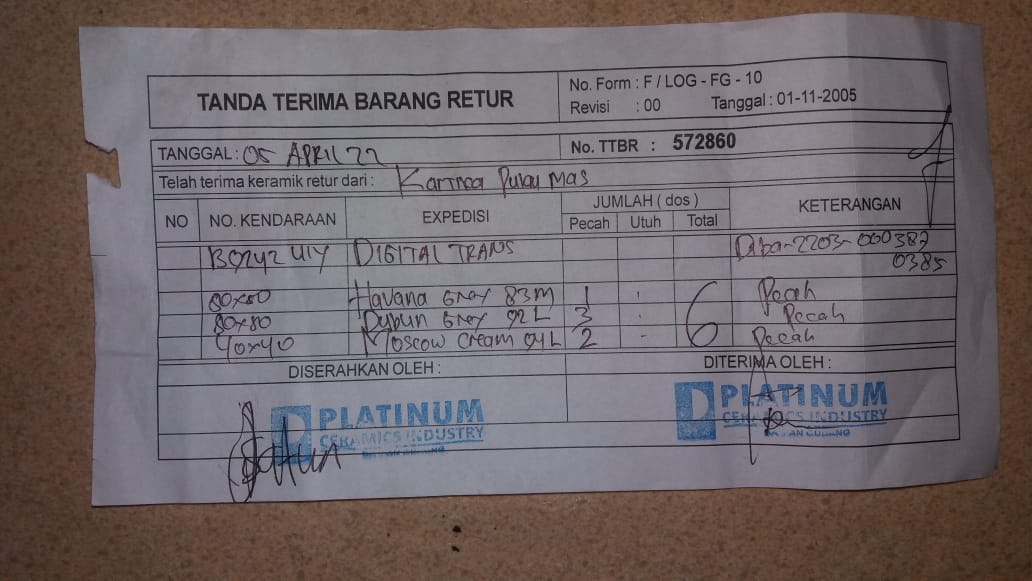 TANDA TERIMA BARANG RETUR
No. Form : F / LOG - FG - 10
Revisi : 00 Tanggal : 01-11-2005
TANGGAL : 05 APRIL 22
No. TTBR : 572860
Telah terima keramik retur dari : Pulau Mas
NO NO. KENDARAAN EXPEDISI JUMLAH ( dos ) KETERANGAN
Pecah Utuh Total
DIGITAL TRANS
0385
80x80 Havana Grey 83M 1 Pecah
80x80 Grey 92L 3 6 Pecah
40x40 Moscow Cream 94L 2 - Pecah
DISERAHKAN OLEH : DITERIMA OLEH :
PLATINUM
CERAMICS INDUSTRY
PLATINUM
CERAMICS INDUSTRY